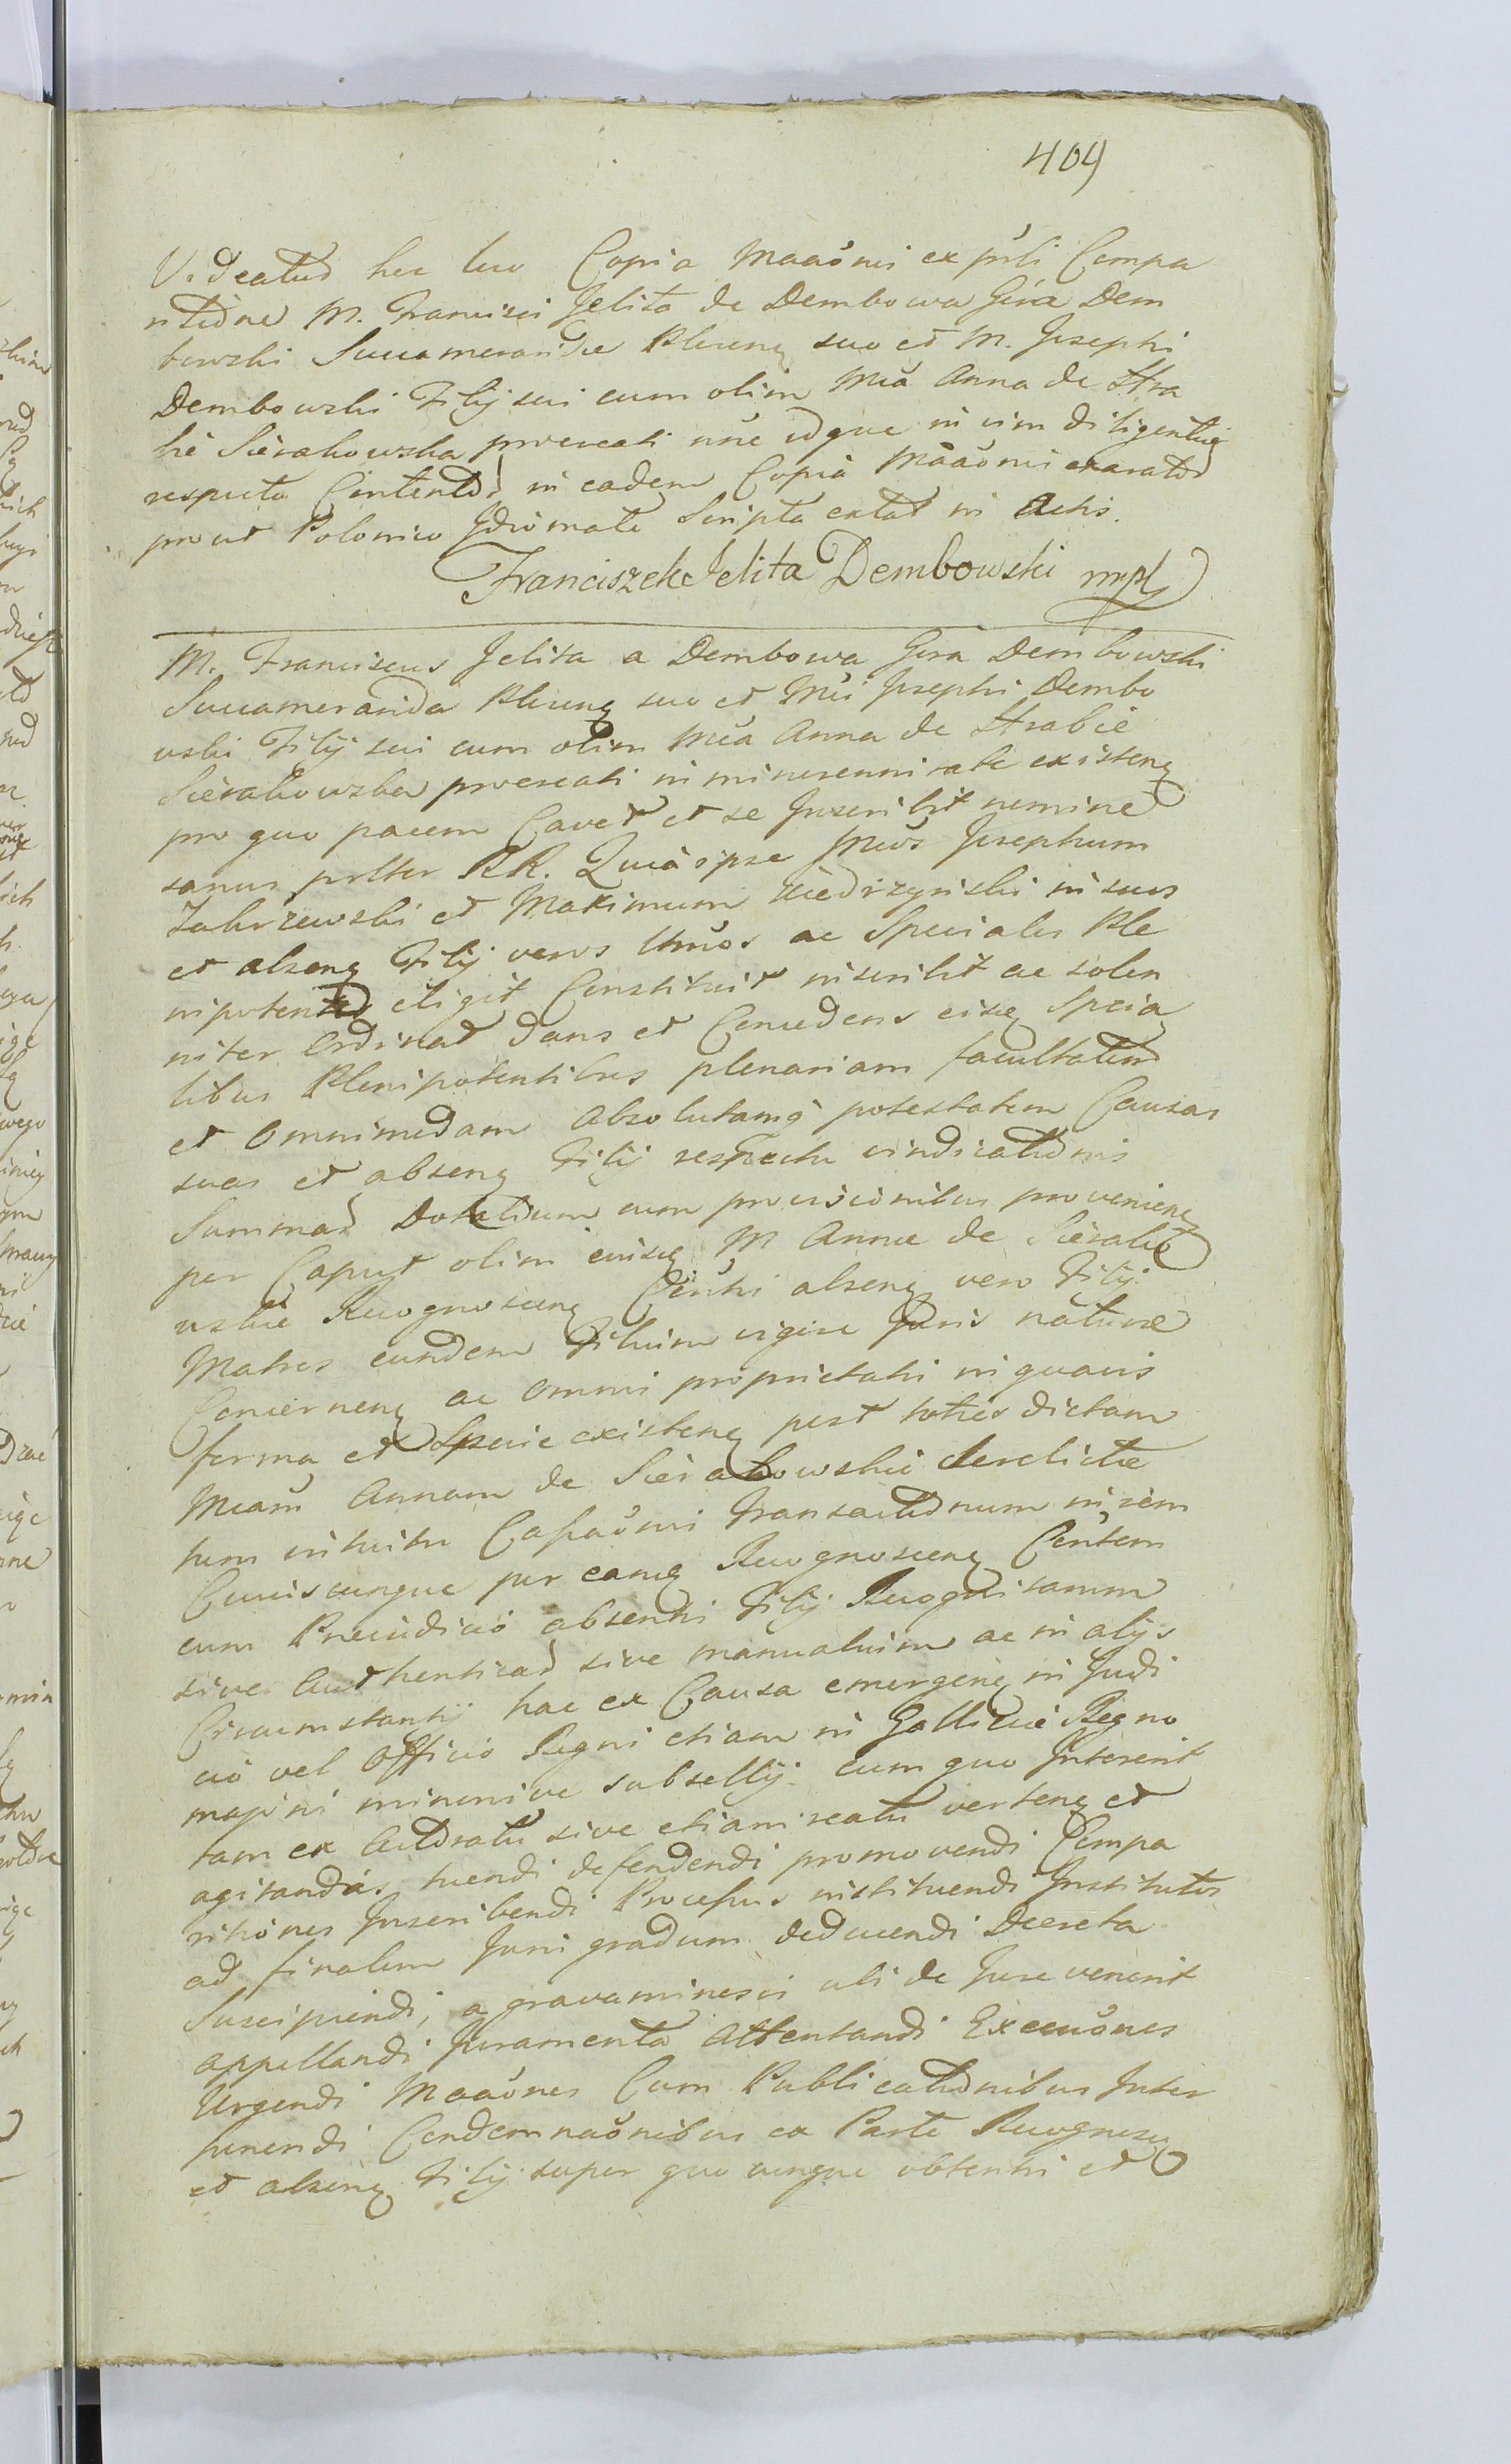 409
Videatur hec luo Copia Maaõni ex pñli Compa
ritione M. Francisci Jelita de Dembowa Góra Dem
bowski Succamerarida Plunen suo et M. Josephi
Dembowski Filij sui cum olim Mcã Anna de Hra
bie Sierakowska procreati nõe idque in vim diligentiae
respectu Contentor in eadem Copia Maaõni exarator
prout Polonico Jdiomate Scripta extat in Actis.
Franciszek Jelita Dembowski mpp
M. Franciscus Jelita a Dembowa Gora Dembowski
Succamerarida Plunen suo et Mci Josephi Dembo
wski Filij sui cum olim Mcã Anna de Hrabie
Sierakowska procreati in minorennitate existen
pro quo pacem Cavet et se Inscribit nomine
sanus pltter RR. Quia ipse Mcos Josephum
Zakrzewski et Maximum Niedrzyński in suos
et absen Filij veros Umõs ac Speciales Ple
nipotentes eligit Constituit inscribit ac solen
niter Ordinat dans et Concedens eisq Specia
libus Plenipotentibus plenariam facultatem
et Omnimodam Absolutamq potestatem Causas
suas et absen Filij respectu vindicationis
Summar Dotalium cum provisionibus provenien
per Caput olim eiusq M Annae de Sierako
wskie Recognoscen Coñthi absen vero Filij
Matris eundem Filium vigore Juris naturae
Concernen ac omni proprietati in quavis
forma et Specie existen post toties dictam
Mcam Annam de Sierakowskie derelictae
tum intuitu Cassaõni Transactionum in rem
Cuiuscunque per eamq Recognoscen Contem
cum Preiudicio absenti Filij Recognitarum
sive Authenticar sive manualium ac in alijs
Circumstantij hac ex Causa emergen in Judi
cio vel Officio Regni etiam in Galliciae Regno
majori minorive subsellij cum quo Intererit
tam ex Actoratu sive etiam reatu verten et
agitandas tuendi defendendi promovendi Compa
ritiones Inscribendi Processus instituendi Institutos
ad finalem Juri gradum deducendi Decreta
Suscipiendi, a gravaminesis ubi de Jure venerit
appellandi Juramenta Attentandi Execuõnes
Urgendi Maaõnes Cum Publicationibus Inter
ponendi Condemnaõnibus ex Parte Recognoscen
et absen Filij super quocunque obtenti et